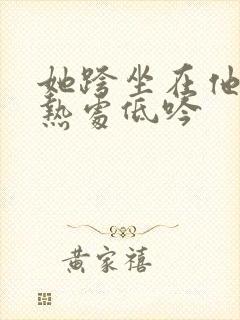 她跨坐在他
熱處低吟
黄家禧